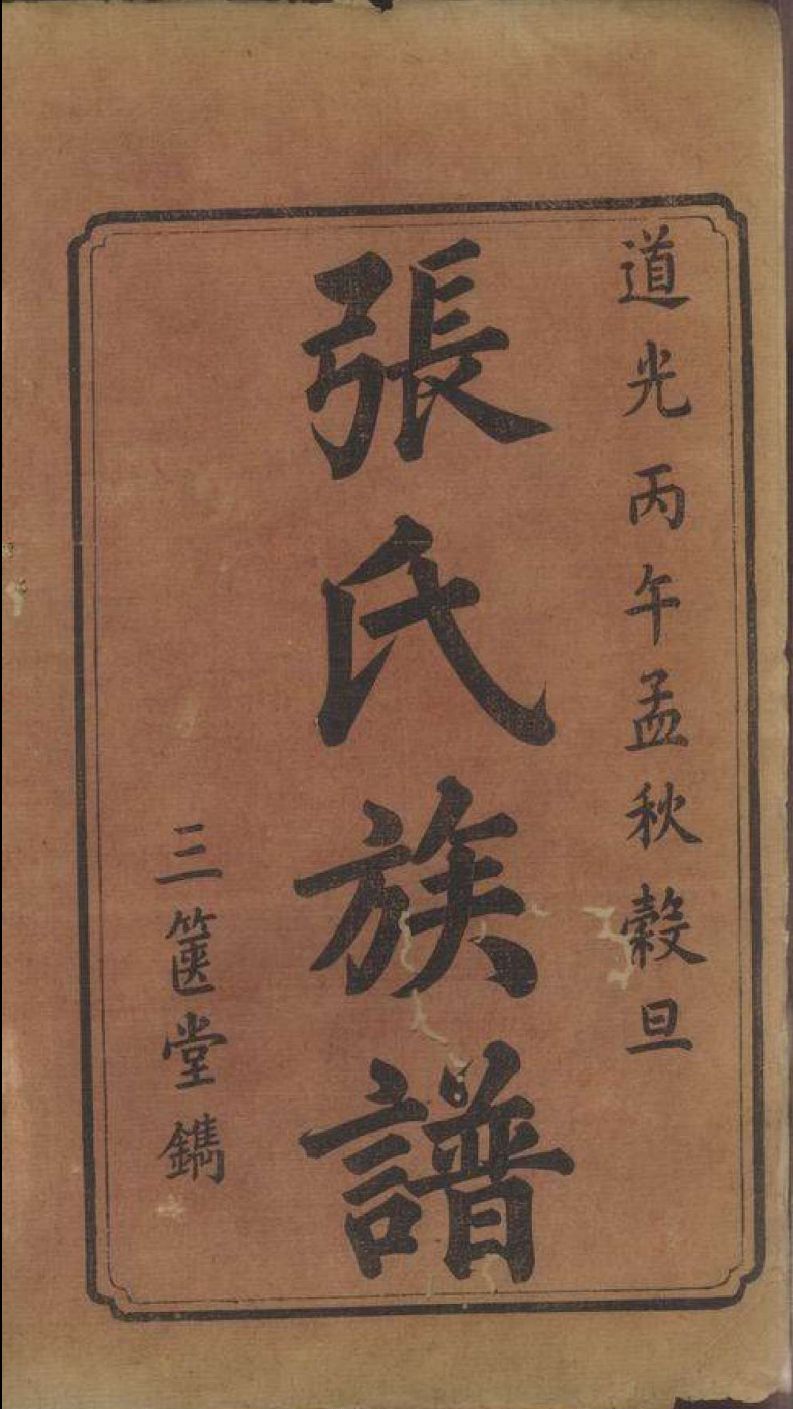 道光丙午孟秋穀旦
張氏族譜
三篋堂鐫